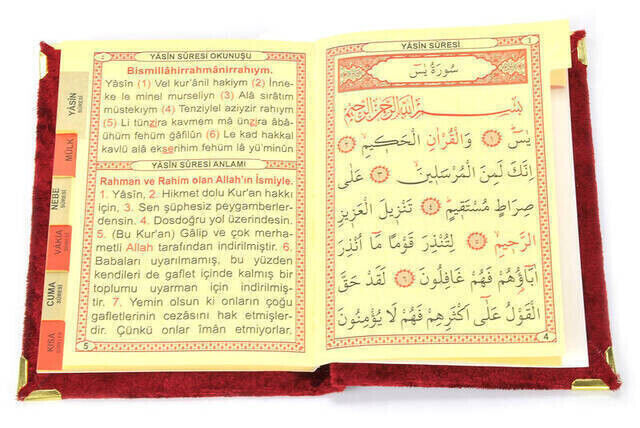 YÂSİN SÛRESİ OKUNUŞU
Bismillâhirrahmânirrahıym.
Yâsîn (1) Vel kur'ânil hakiym (2) İnne-
ke le minel murseliyn (3) Alâ sirâtım
müstekıym (4) Tenziylel aziyzir rahıym
(5) Li tünzira kavmem mâ ünzira âbâ-
ühüm fehüm ğâfilûn (6) Le kad hakkal
kavlü alâ ekserihim fehüm lâ yü'minûn
YÂSİN SÛRESİ ANLAMI
Rahman ve Rahim olan Allah'ın İsmiyle.
1. Yâsîn, 2. Hikmet dolu Kur'an hakkı
için, 3. Sen şüphesiz peygamberler-
densin. 4. Dosdoğru yol üzerindesin.
5. (Bu Kur'an) Gâlip ve çok merha-
metli Allah tarafından indirilmiştir. 6.
Babaları uyarılmamış, bu yüzden
kendileri de gaflet içinde kalmış bir
toplumu uyarman için indirilmiş-
tir. 7. Yemin olsun ki onların çoğu
gafletlerinin cezasını hak etmişler-
dir. Çünkü onlar îmân etmiyorlar.
5
YÂSİN SÛRESİ
MÜLK
NEBE SÛRESİ
VAKIA SÛRESİ
CUMA SÛRESİ
KISA
YÂSİN SÛRESİ
سُورَةُ يٰسٓ
بِسْمِ اللّٰهِ الرَّحْمٰنِ الرَّحِيمِ
يٰسٓ ﴿١﴾ وَالْقُرْاٰنِ الْحَكِيمِ ﴿٢﴾
اِنَّكَ لَمِنَ الْمُرْسَلِينَ ﴿٣﴾ عَلٰى
صِرَاطٍ مُسْتَقِيمٍ ﴿٤﴾ تَنْزِيلَ الْعَزِيزِ
الرَّحِيمِ ﴿٥﴾ لِتُنْذِرَ قَوْمًا مَٓا اُنْذِرَ
اٰبَٓاؤُهُمْ فَهُمْ غَافِلُونَ ﴿٦﴾ لَقَدْ حَقَّ
الْقَوْلُ عَلٰٓى اَكْثَرِهِمْ فَهُمْ لَا يُؤْمِنُونَ
4